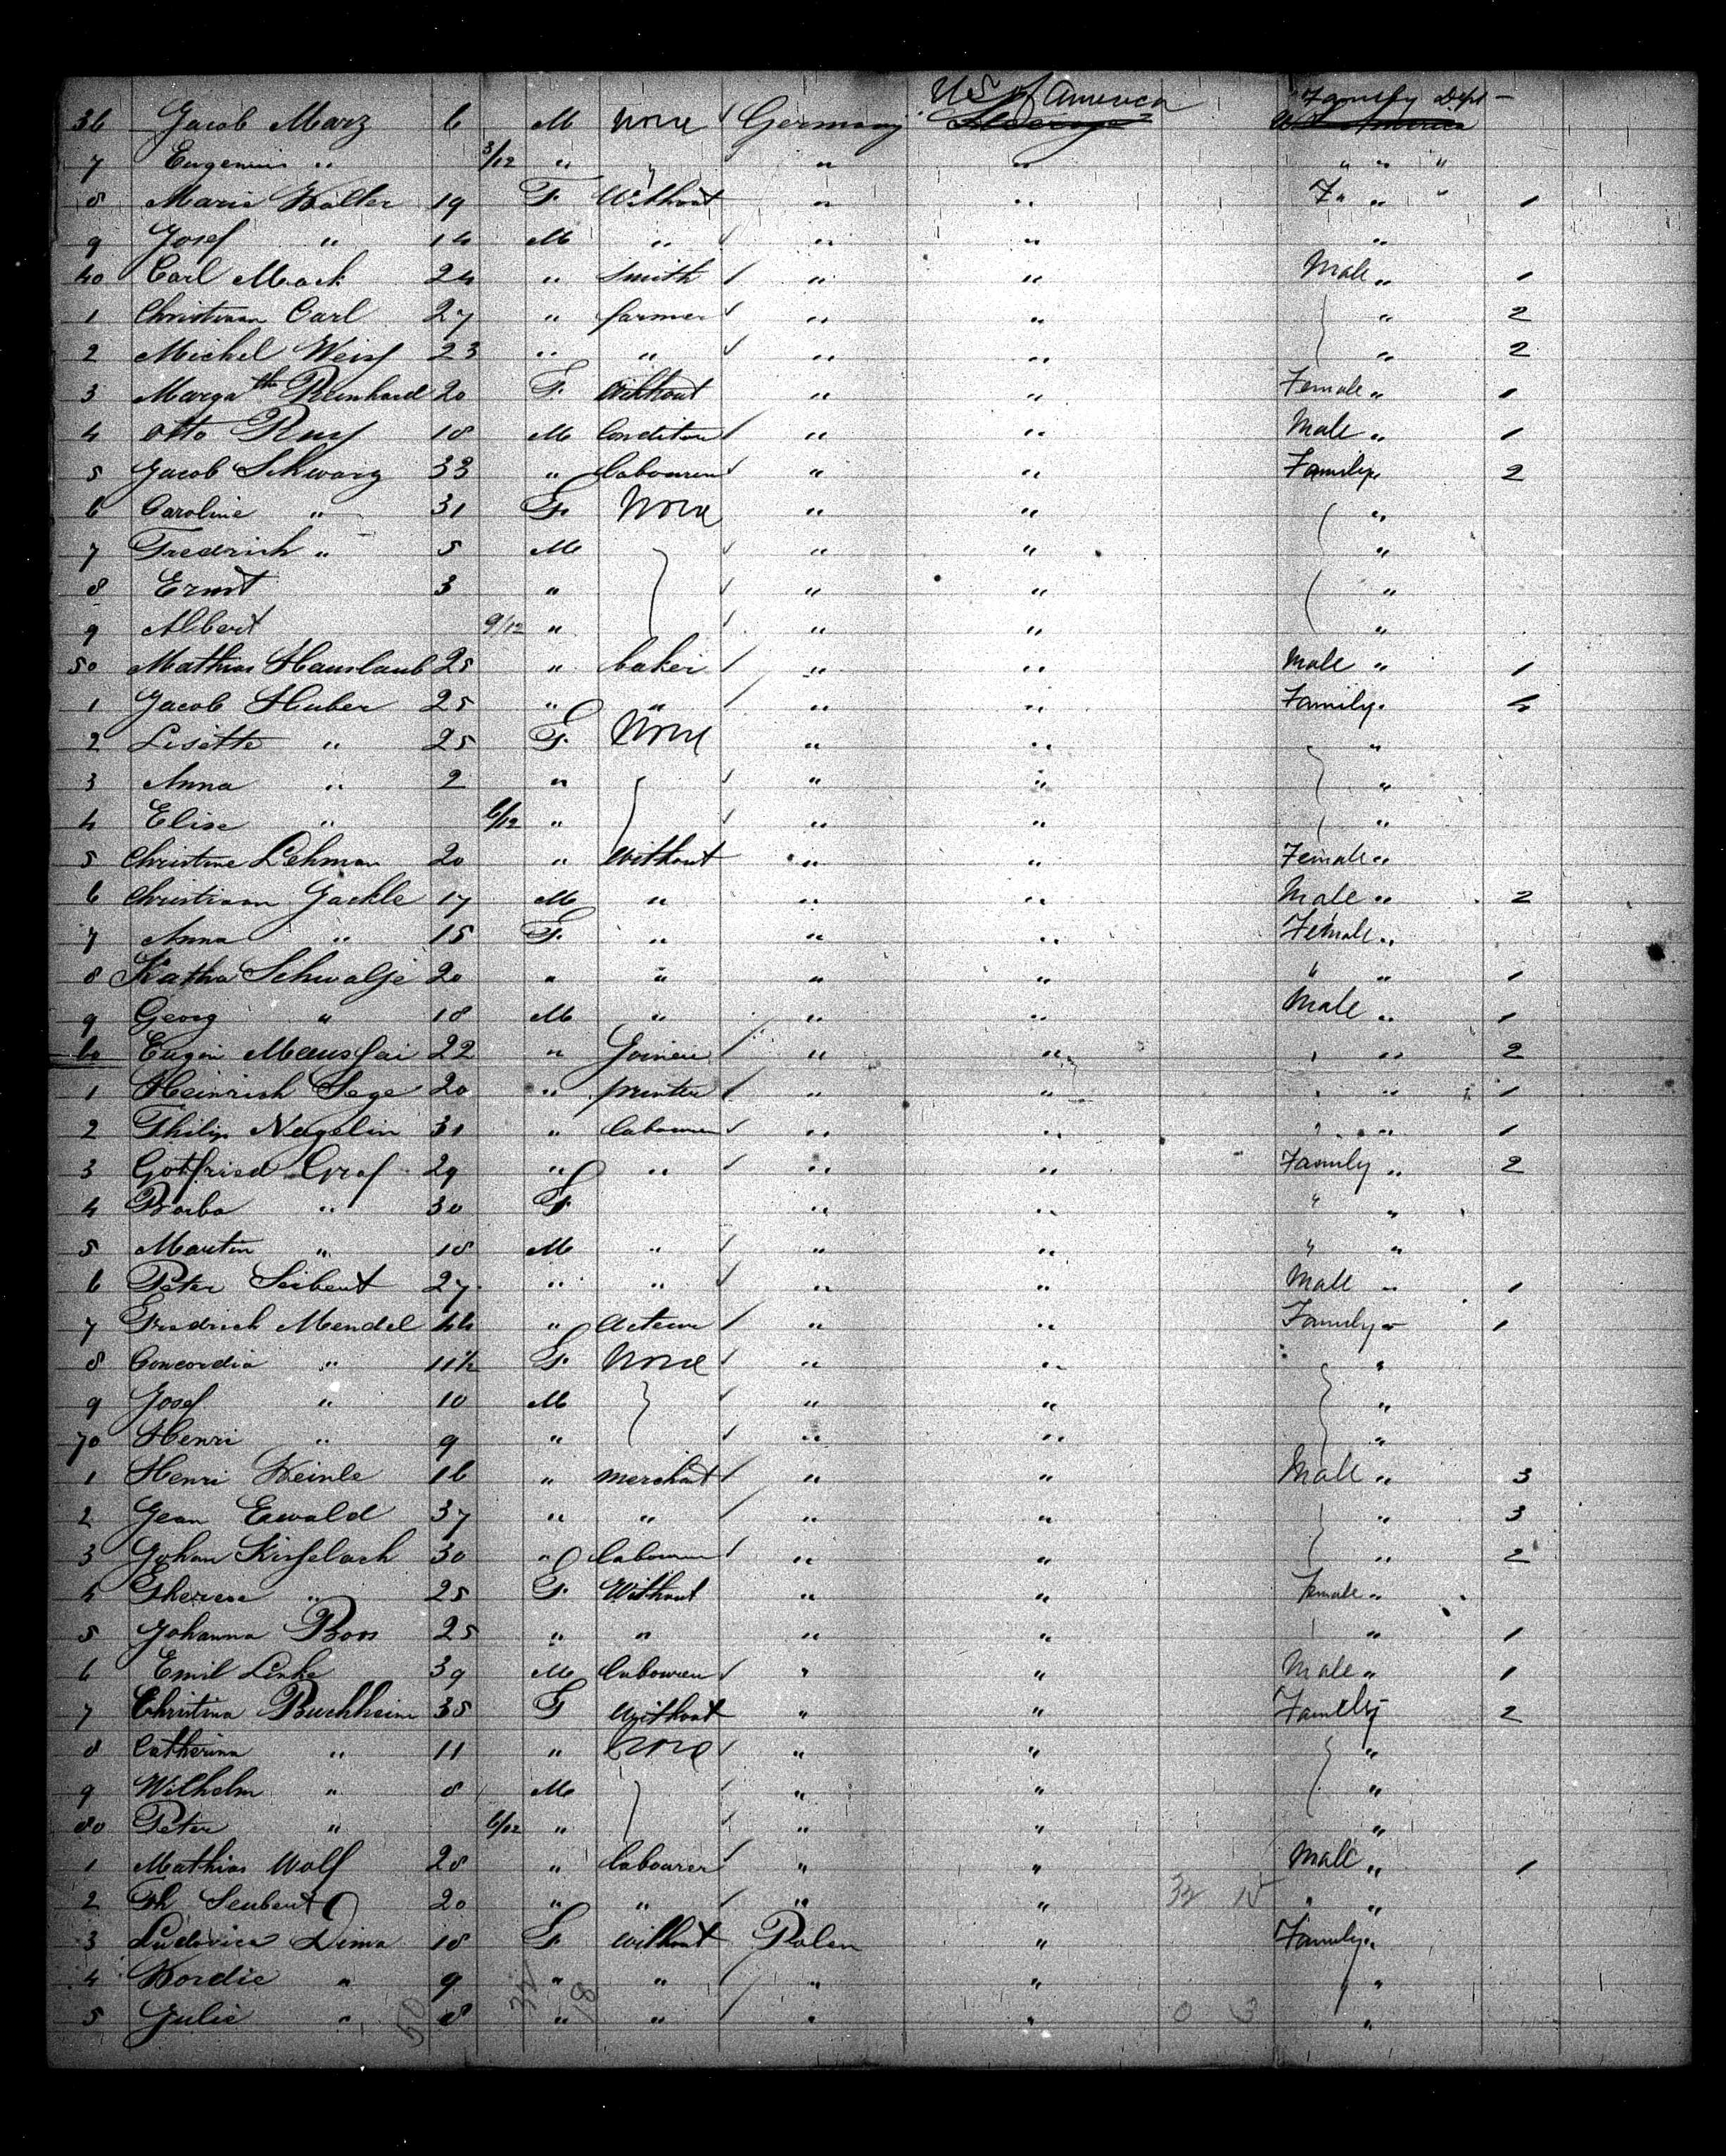 US of America Family Dept
36 Jacob Marz 6 M None Germany
7 Eugenius " 3/12 " " " " " " "
8 Maria Walter 19 F. Without " " F" " " 1
9 Josef " 14 M " " " "
40 Carl Mack 24 " Smith " " Male " 1
1 Christian Carl 27 " farmer " " " 2
2 Michel Weiss 23 " " " " " 2
3 Margathe Reinhard 20 F. Without " " Female " 1
4 Otto 18 M Conditor " " Male " 1
5 Jacob Schwarz 33 " labourer " " Family " 2
6 Caroline " 31 F. None " " "
7 Fredrich " 5 M " " "
8 Ernst 3 " " " "
9 Albert 9/12 " " " "
50 Mathias Hauslaub 25 " baker " " Male " 1
1 Jacob Huber 25 " " " " Family " 4
2 Lisette " 25 F. None " " "
3 Anna " 2 " " " "
4 Elise " 6/12 " " " "
5 Christine Lehman 20 " Without " " Female "
6 Christian Jackle 17 M " " " Male " 2
7 Anna " 15 F. " " " Female "
8 Katha Schwalje 20 " " " " " " 1
9 Georg " 18 M " " " Male " 1
60 Eugen 22 " Joiner " " " " 2
1 Heinrich Sege 20 " printer " " " " 1
2 Philip Nagelin 31 " labourer " " " " 1
3 Gotfried Graf 29 " " " " Family " 2
4 Barba " 30 F. " " " "
5 Martin " 18 M " " " " "
6 Peter Seibert 27 " " " " Male " 1
7 Fredrich Mendel 44 " acteur " " Family " 1
8 Concordia " 11 1/2 F. None " " "
9 Josef " 10 M " " "
70 Henri " 9 " " " "
1 Henri Heinle 16 " merchant " " Male " 3
2 Jean Ewald 37 " " " " " 3
3 Johan Kisselach 30 " labourer " " " 2
4 Therese " 25 F. Without " " Female "
5 Johanna Boos 25 " " " " " 1
6 Emil Linke 39 M labourer " " Male " 1
7 Christina Buchheim 35 F Without " " Family 2
8 Catherina " 11 " None " " "
9 Wilhelm " 8 M " " "
80 Peter " 6/12 " " " "
1 Mathias Wolf 28 " labourer " " Male " 1
2 Th Seubert 20 " " " " " "
3 Ludovica Dima 18 F. Without Polen " Family "
4 Kordie " 9 " " " " "
5 Julie " 8 " " " " 0 3 "